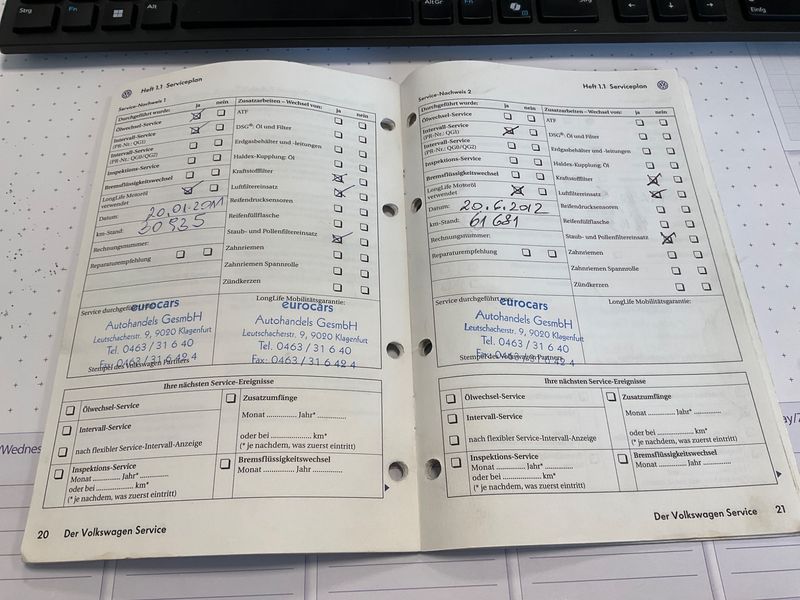 Strg
Fn
Alt
AltGr
Fn
Strg
Einfg
Heft 1.1 Serviceplan
Service-Nachweis 1
Durchgeführt wurde: ja nein
Ölwechsel-Service
Intervall-Service
(PR-Nr.: QG1)
Intervall-Service
(PR-Nr.: QG0/QG2)
Inspektions-Service
Bremsflüssigkeitswechsel
LongLife Motoröl
verwendet
Datum: 20.01.2011
km-Stand: 30935
Rechnungsnummer:
Reparaturempfehlung
Zusatzarbeiten – Wechsel von: ja nein
ATF
DSG®: Öl und Filter
Erdgasbehälter und -leitungen
Haldex-Kupplung: Öl
Kraftstofffilter
Luftfiltereinsatz
Reifendrucksensoren
Reifenfüllflasche
Staub- und Pollenfiltereinsatz
Zahnriemen
Zahnriemen Spannrolle
Zündkerzen
Service durchgeführt
eurocars
Autohandels GesmbH
Leutschacherstr. 9, 9020 Klagenfurt
Tel. 0463 / 31 6 40
Fax: 0463 / 31 6 42 4
Stempel des Volkswagen Partners
LongLife Mobilitätsgarantie:
eurocars
Autohandels GesmbH
Leutschacherstr. 9, 9020 Klagenfurt
Tel. 0463 / 31 6 40
Fax: 0463 / 31 6 42 4
Ihre nächsten Service-Ereignisse
Ölwechsel-Service
Intervall-Service
nach flexibler Service-Intervall-Anzeige
Inspektions-Service
Monat ........... Jahr* ...........
oder bei ........... km*
(* je nachdem, was zuerst eintritt)
Zusatzumfänge
Monat ........... Jahr* ...........
oder bei ........... km*
(* je nachdem, was zuerst eintritt)
Bremsflüssigkeitswechsel
Monat ........... Jahr ...........
20 Der Volkswagen Service
Heft 1.1 Serviceplan
Service-Nachweis 2
Durchgeführt wurde: ja nein
Ölwechsel-Service
Intervall-Service
(PR-Nr.: QG1)
Intervall-Service
(PR-Nr.: QG0/QG2)
Inspektions-Service
Bremsflüssigkeitswechsel
LongLife Motoröl
verwendet
Datum: 20.6.2012
km-Stand: 61681
Rechnungsnummer:
Reparaturempfehlung
Zusatzarbeiten – Wechsel von: ja nein
ATF
DSG®: Öl und Filter
Erdgasbehälter und -leitungen
Haldex-Kupplung: Öl
Kraftstofffilter
Luftfiltereinsatz
Reifendrucksensoren
Reifenfüllflasche
Staub- und Pollenfiltereinsatz
Zahnriemen
Zahnriemen Spannrolle
Zündkerzen
Service durchgeführt
eurocars
Autohandels GesmbH
Leutschacherstr. 9, 9020 Klagenfurt
Tel. 0463 / 31 6 40
Fax: 0463 / 31 6 42 4
Stempel des Volkswagen Partners
LongLife Mobilitätsgarantie:
Ihre nächsten Service-Ereignisse
Ölwechsel-Service
Intervall-Service
nach flexibler Service-Intervall-Anzeige
Inspektions-Service
Monat ........... Jahr* ...........
oder bei ........... km*
(* je nachdem, was zuerst eintritt)
Zusatzumfänge
Monat ........... Jahr* ...........
oder bei ........... km*
(* je nachdem, was zuerst eintritt)
Bremsflüssigkeitswechsel
Monat ........... Jahr ...........
Der Volkswagen Service 21